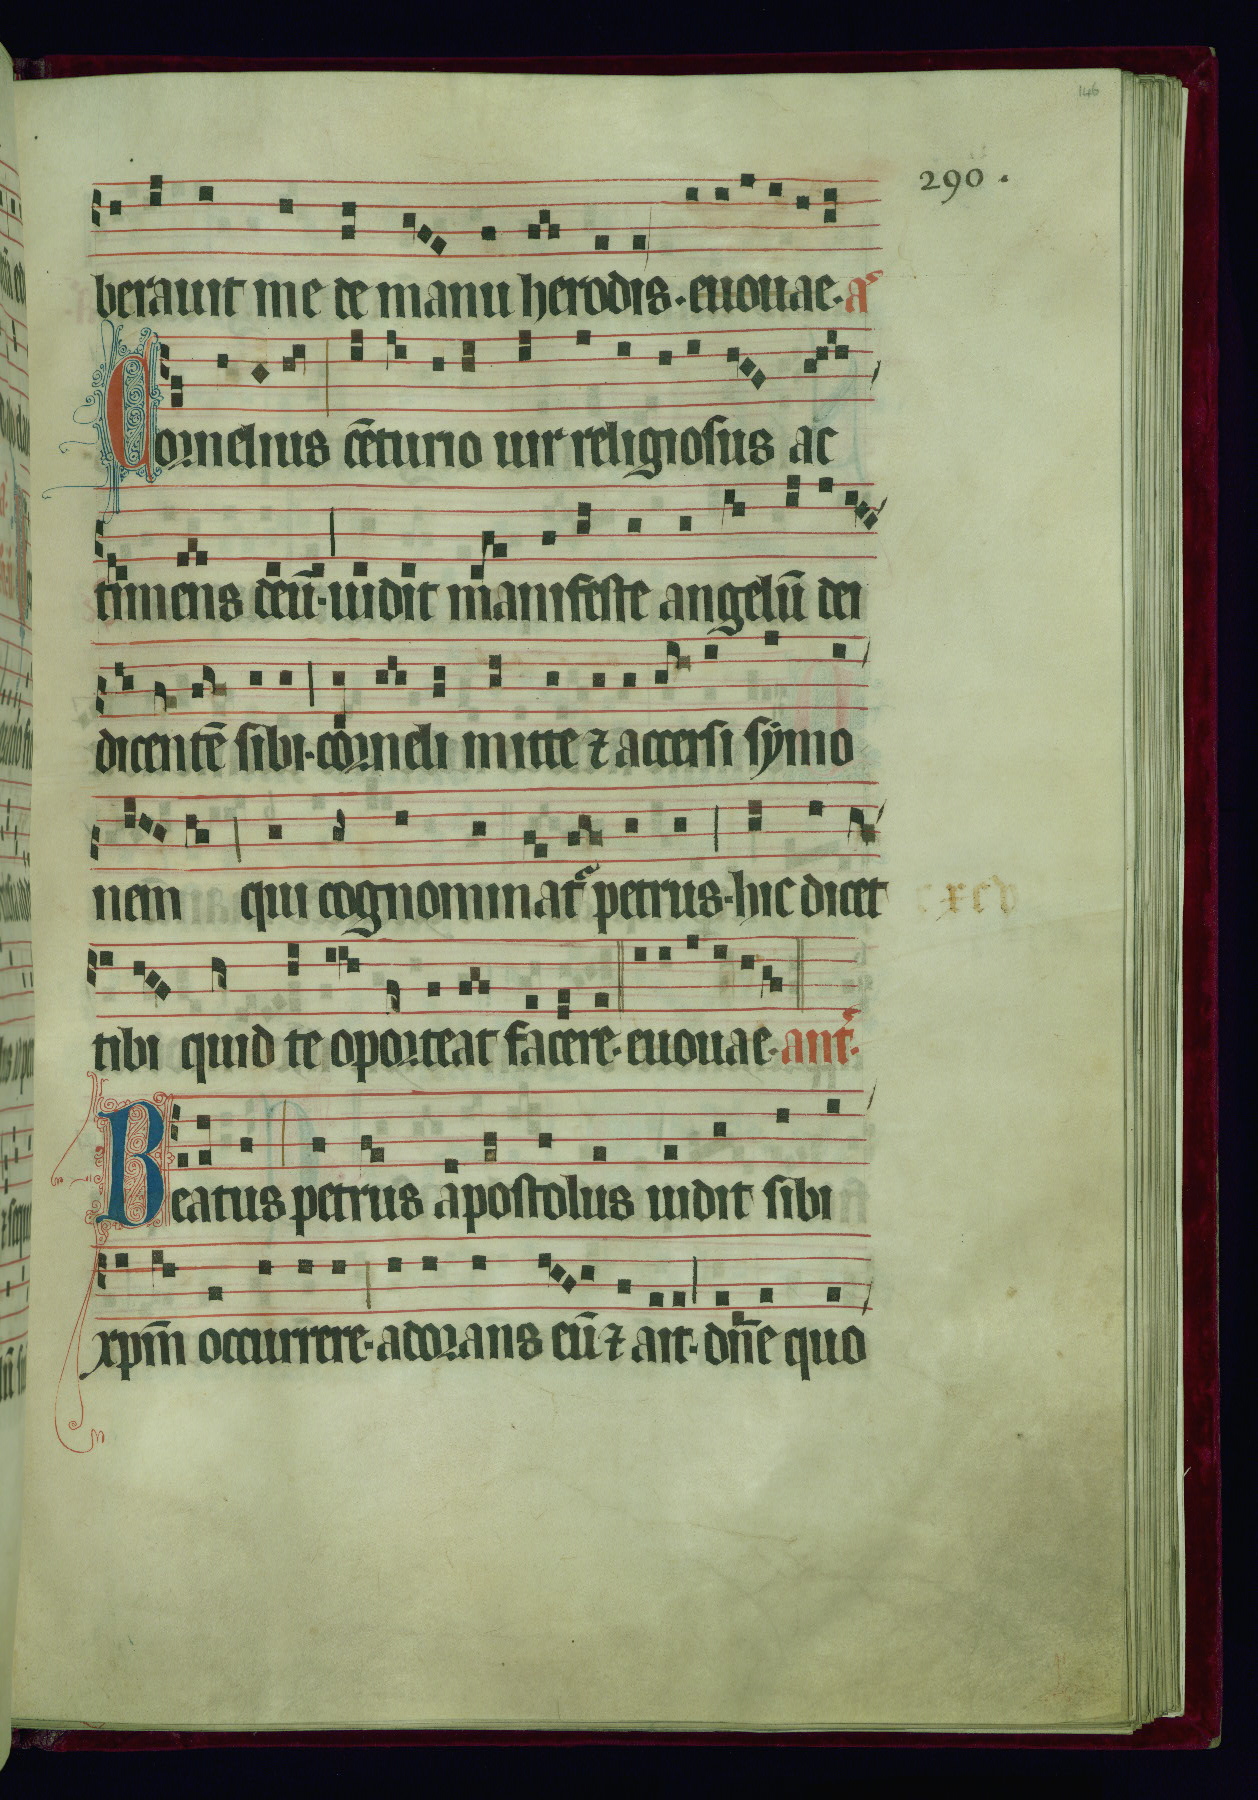 146
290.
berauit me de manu herodis. euouae. a
Cornelius cēturio uir religiosus ac
timens deū. uidit manifeste angelū dei
dicentē sibi. corneli mitte ⁊ accersi symo
nem qui cognominat᷑ petrus. hic dicet
tibi quid te oporteat facere. euouae. ant.
Beatus petrus apostolus uidit sibi
xpm̄ occurrere. adorans eū ⁊ ait. dn̄e quo